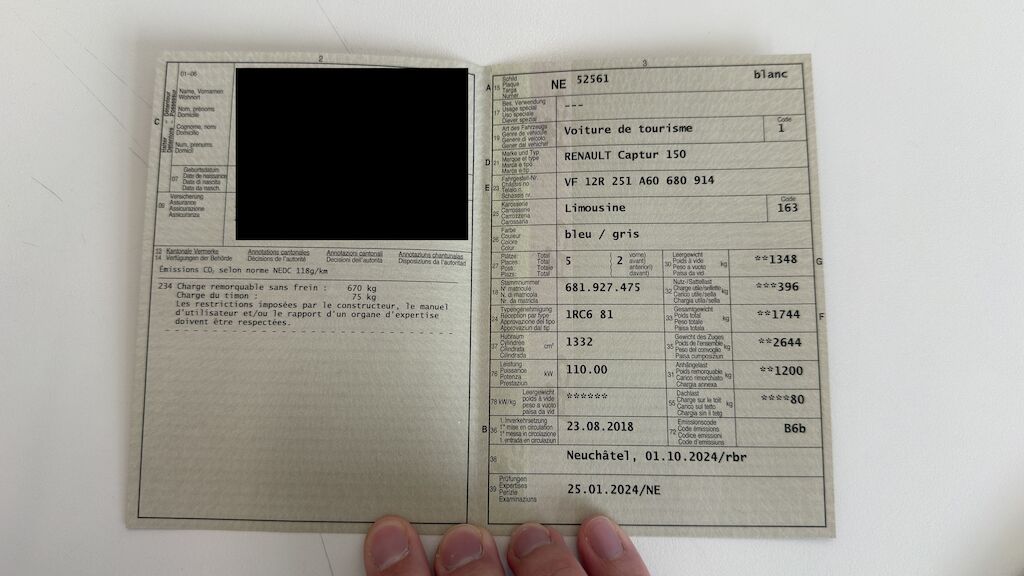 2
01-06
C
Name, Vornamen
Wohnort
Nom, prénoms
Domicile
Cognome, nomi
Domicilio
Num, prenums
Domicil
07
Geburtsdatum
Date de naissance
Data di nascita
Data da nasch.
09
Versicherung
Assurance
Assicurazione
Assicuranza
13 Kantonale Vermerke
14 Verfügungen der Behörde
Annotations cantonales
Décisions de l'autorité
Annotazioni cantonali
Decisioni dell'autorità
Annotaziuns chantunalas
Disposiziuns da l'autoritad
Emissions CO₂ selon norme NEDC 118g/km
234 Charge remorquable sans frein : 670 kg
Charge du timon : 75 kg
Les restrictions imposées par le constructeur, le manuel
d'utilisateur et/ou le rapport d'un organe d'expertise
doivent être respectées.
3
A 15 Schild
Plaque
Targa
Numer
NE 52561 blanc
17 Bes. Verwendung
Usage spécial
Uso speciale
Diever spezial
---
19 Art des Fahrzeugs
Genre de véhicule
Genere di veicolo
Gener dal vehichel
Voiture de tourisme
Code
1
D 21 Marke und Typ
Marque et type
Marca e tipo
Marca e tip
RENAULT Captur 150
E 23 Fahrgestell-Nr.
Châssis no
Telaio n.
Schassis nr.
VF 12R 251 A60 680 914
25 Karosserie
Carrosserie
Carrozzeria
Carossaria
Limousine
Code
163
26 Farbe
Couleur
Colore
Colur
bleu / gris
27 Plätze: Total
Places: Total
Posti: Totale
Plazs: Total
5 2
vorne)
avant)
anteriori)
davant)
30 Leergewicht
Poids à vide
Peso a vuoto
Paisa da vid
kg
**1348
G
18 Stammnummer
N° matricule
N. di matricola
Nr. da matricla
681.927.475
32 Nutz-/Sattellast
Charge utile/sellette
Carico utile/sella
Chargia utila/sella
kg
***396
24 Typengenehmigung
Réception par type
Approvazione del tipo
Approvaziun dal tip
1RC6 81
33 Gesamtgewicht
Poids total
Peso totale
Paisa totala
kg
**1744
F
37 Hubraum
Cylindrée
Cilindrata
Cilindrada
cm³
1332
35 Gewicht des Zuges
Poids de l'ensemble
Peso del convoglio
Paisa cumposiziun
kg
**2644
76 Leistung
Puissance
Potenza
Prestaziun
kW
110.00
31 Anhängelast
Poids remorquable
Carico rimorchiato
Chargia annexa
kg
**1200
78 kW/kg
Leergewicht
poids à vide
peso a vuoto
paisa da vid
******
55 Dachlast
Charge sur le toit
Carico sul tetto
Chargia sin il tetg
kg
****80
B 36 1. Inverkehrsetzung
1re mise en circulation
1a messa in circolazione
1. entrada en circulaziun
23.08.2018
72 Emissionscode
Code émissions
Codice emissioni
Code d'emissiuns
B6b
38
Neuchâtel, 01.10.2024/rbr
39 Prüfungen
Expertises
Perizie
Examinaziuns
25.01.2024/NE